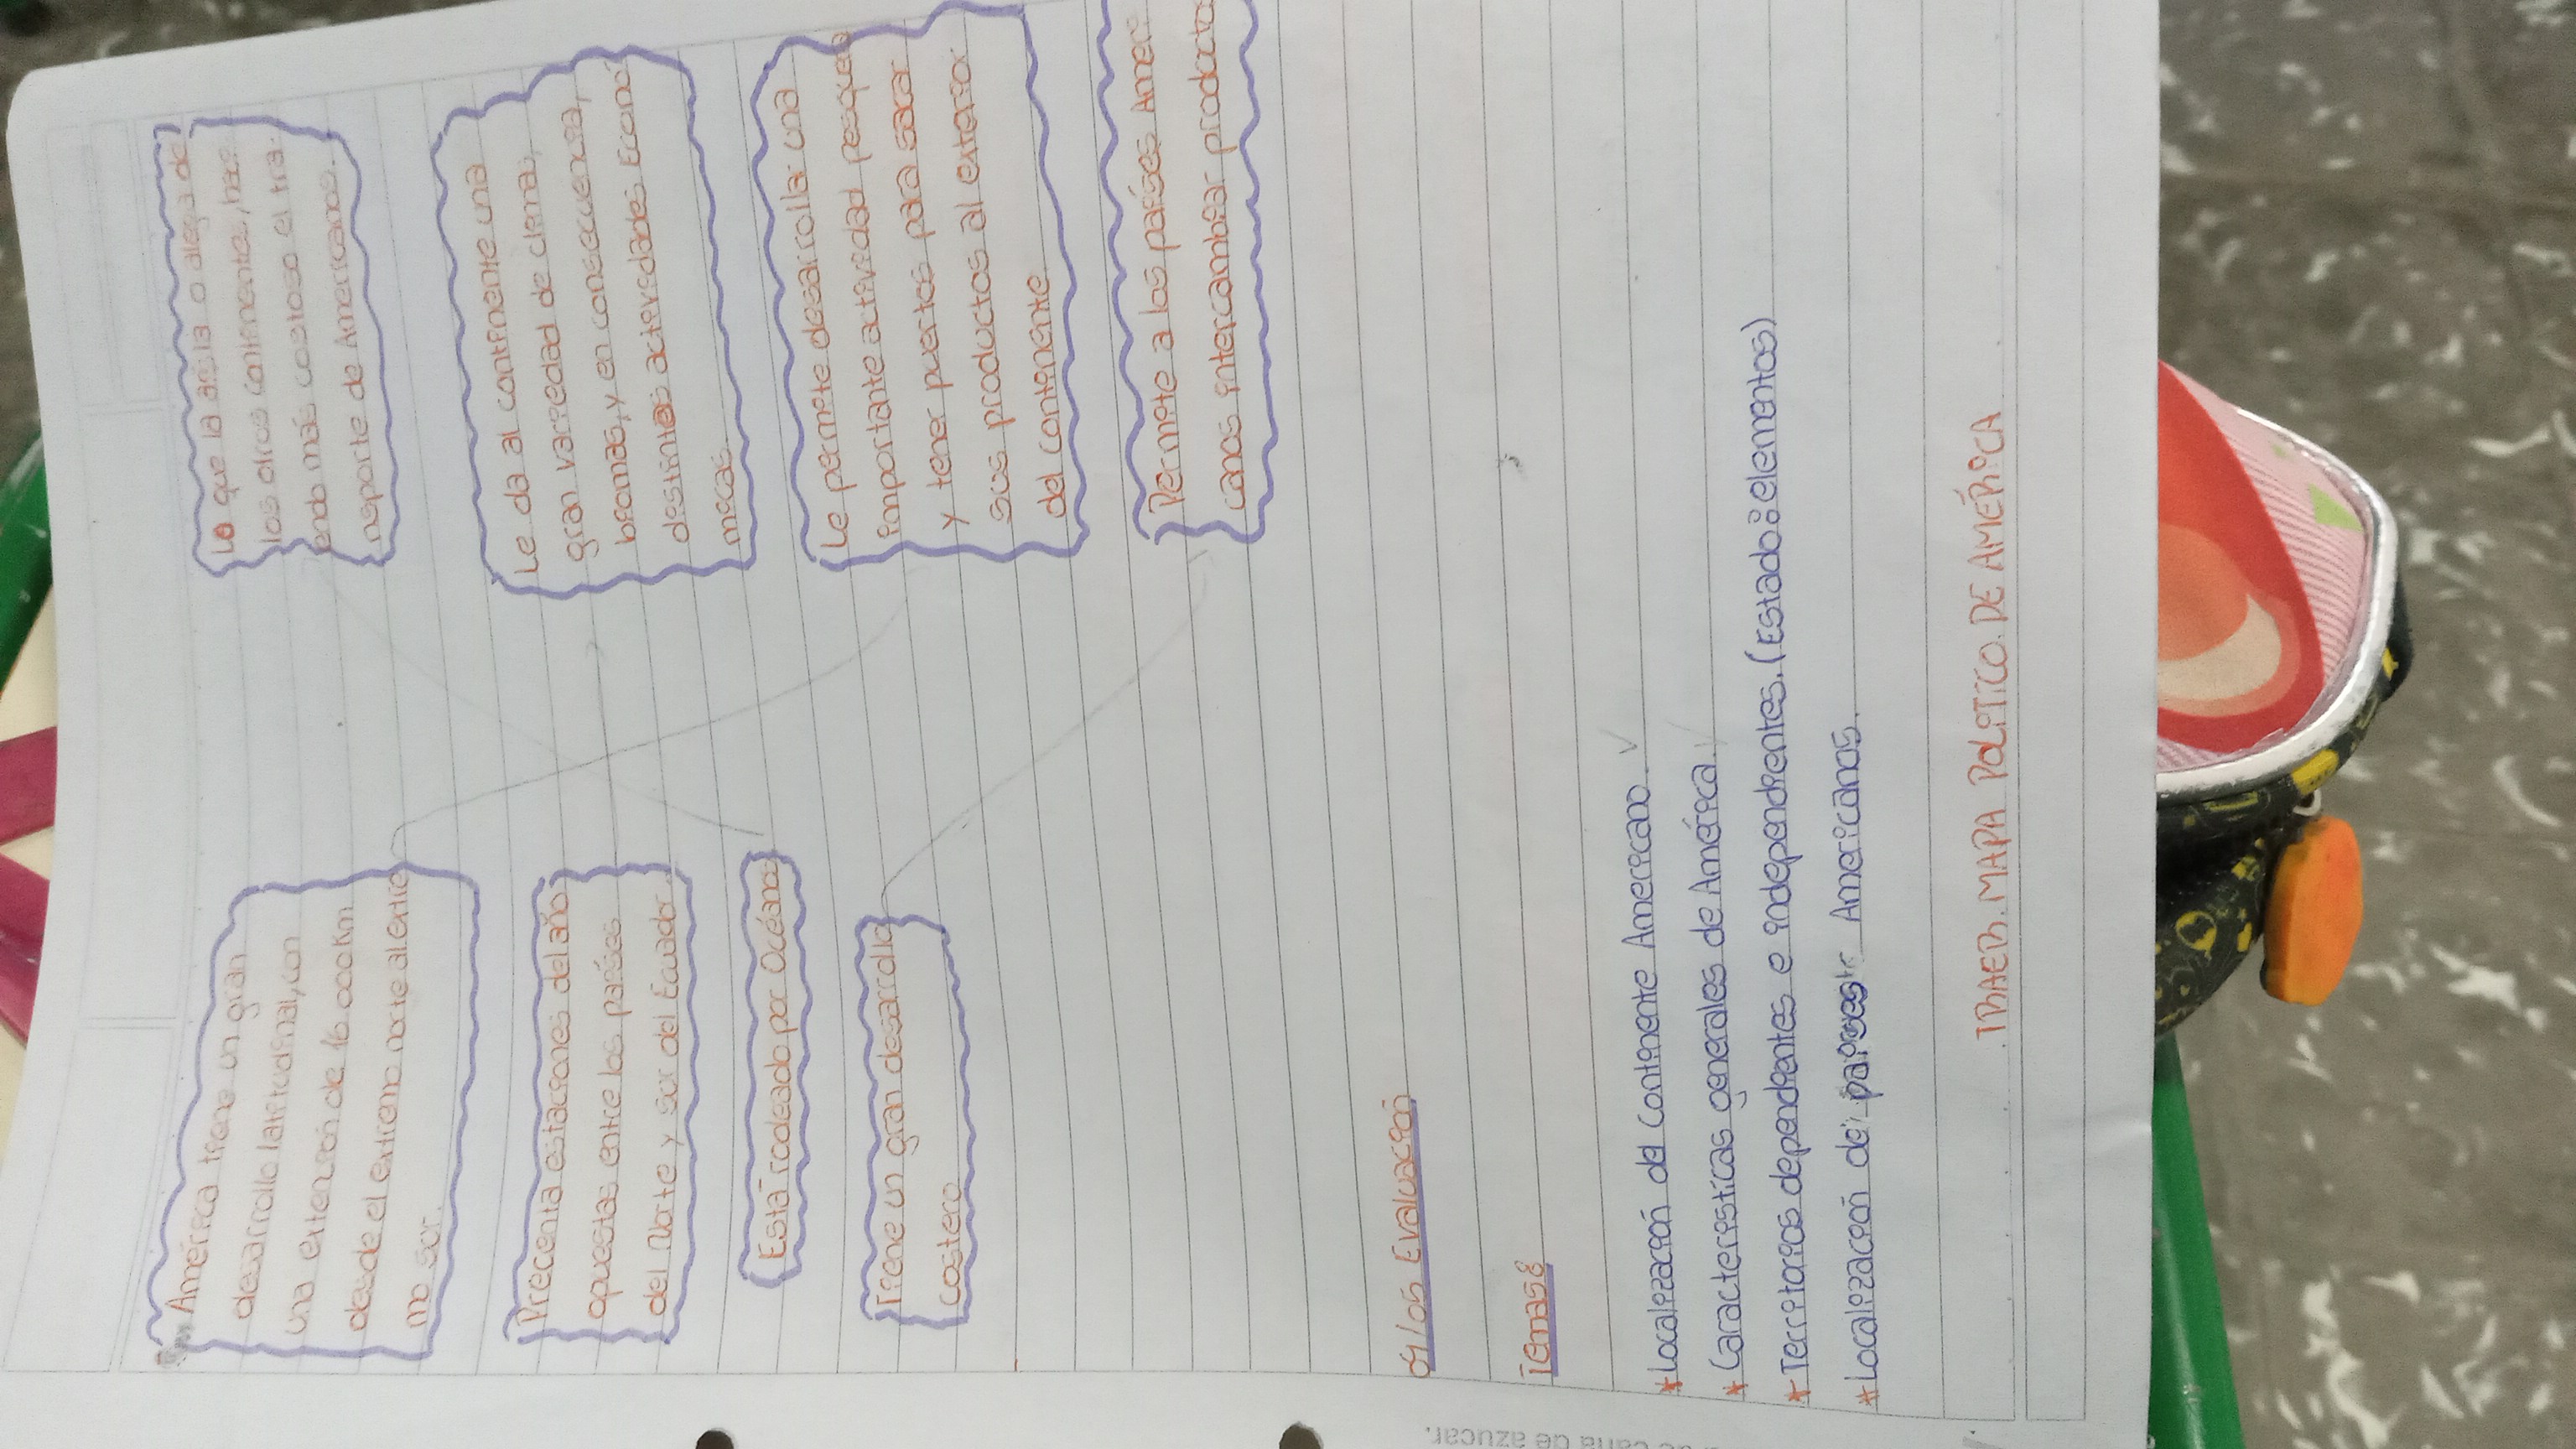 América tiene un gran
desarrollo latitudinal, con
una extención de 16 000 Km
desde el extremo norte al extre
mo sur.
Precenta estaciones del año
opuestas entre los países
del Norte y sur del Ecuador.
Está rodeado por Océanos
Tiene un gran desarrollo
costero
Lo que la aisla o aleja de
los otros continente, haci
endo más costoso el tra
nsporte de Americanos.
Le da al continente una
gran variedad de climas,
biomas, y en consecuencia,
destintas actividades Econo
micas.
Le permite desarrollar una
importante actividad pesquera
y tener puertos para sacar
sus productos al exterior
del continente
Permite a los países Ameri
canos intercambiar producto
Evaluación
Temas:
* Localización del Continente Americano. ✓
* Características generales de América. ✓
* Territorios dependientes e independientes. (Estado: elementos)
* Localización de países Americanos.
TRAER MAPA POLITICO DE AMÉRICA
caña de azucar.